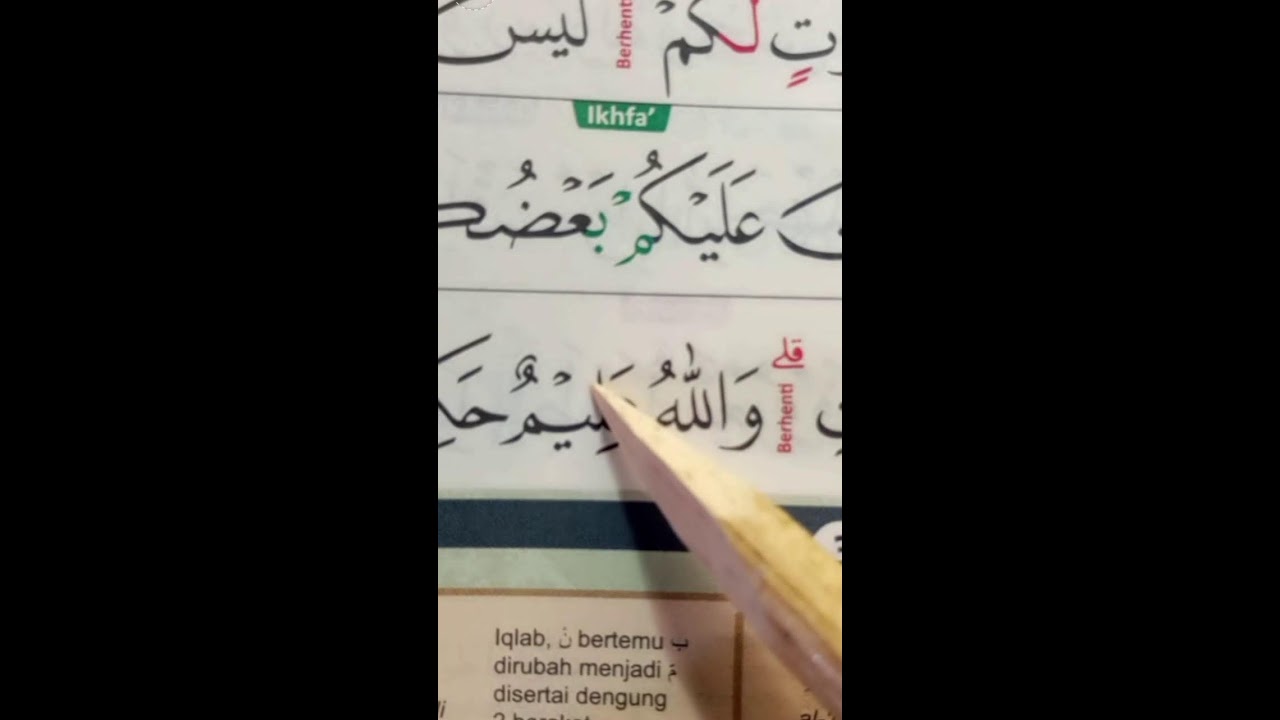 لَكُمْ Berhenti لَيْسَ
Ikhfa’
عَلَيْكُمْ بَعْضُكـ
قلى Berhenti وَاللّٰهُ عَلِيْمٌ حَكِـ
Iqlab, نْ bertemu ب
dirubah menjadi مْ
disertai dengung